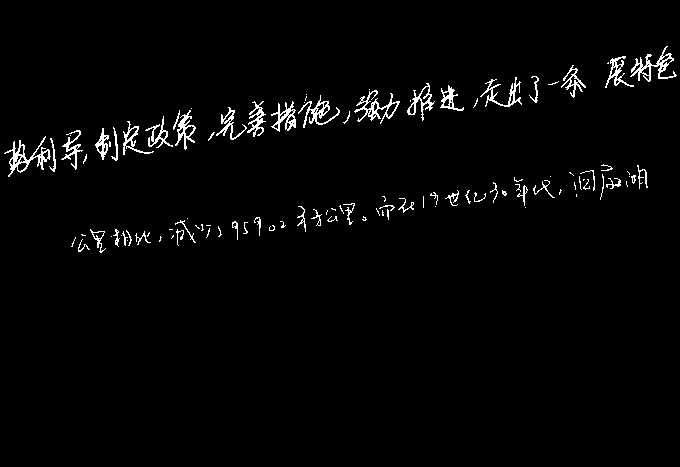 势利导,制定政策,完善措施,强力推进,走出了一条 展特色
公里相比,减少了959.02平方公里。而在19世纪30年代,洞庭湖